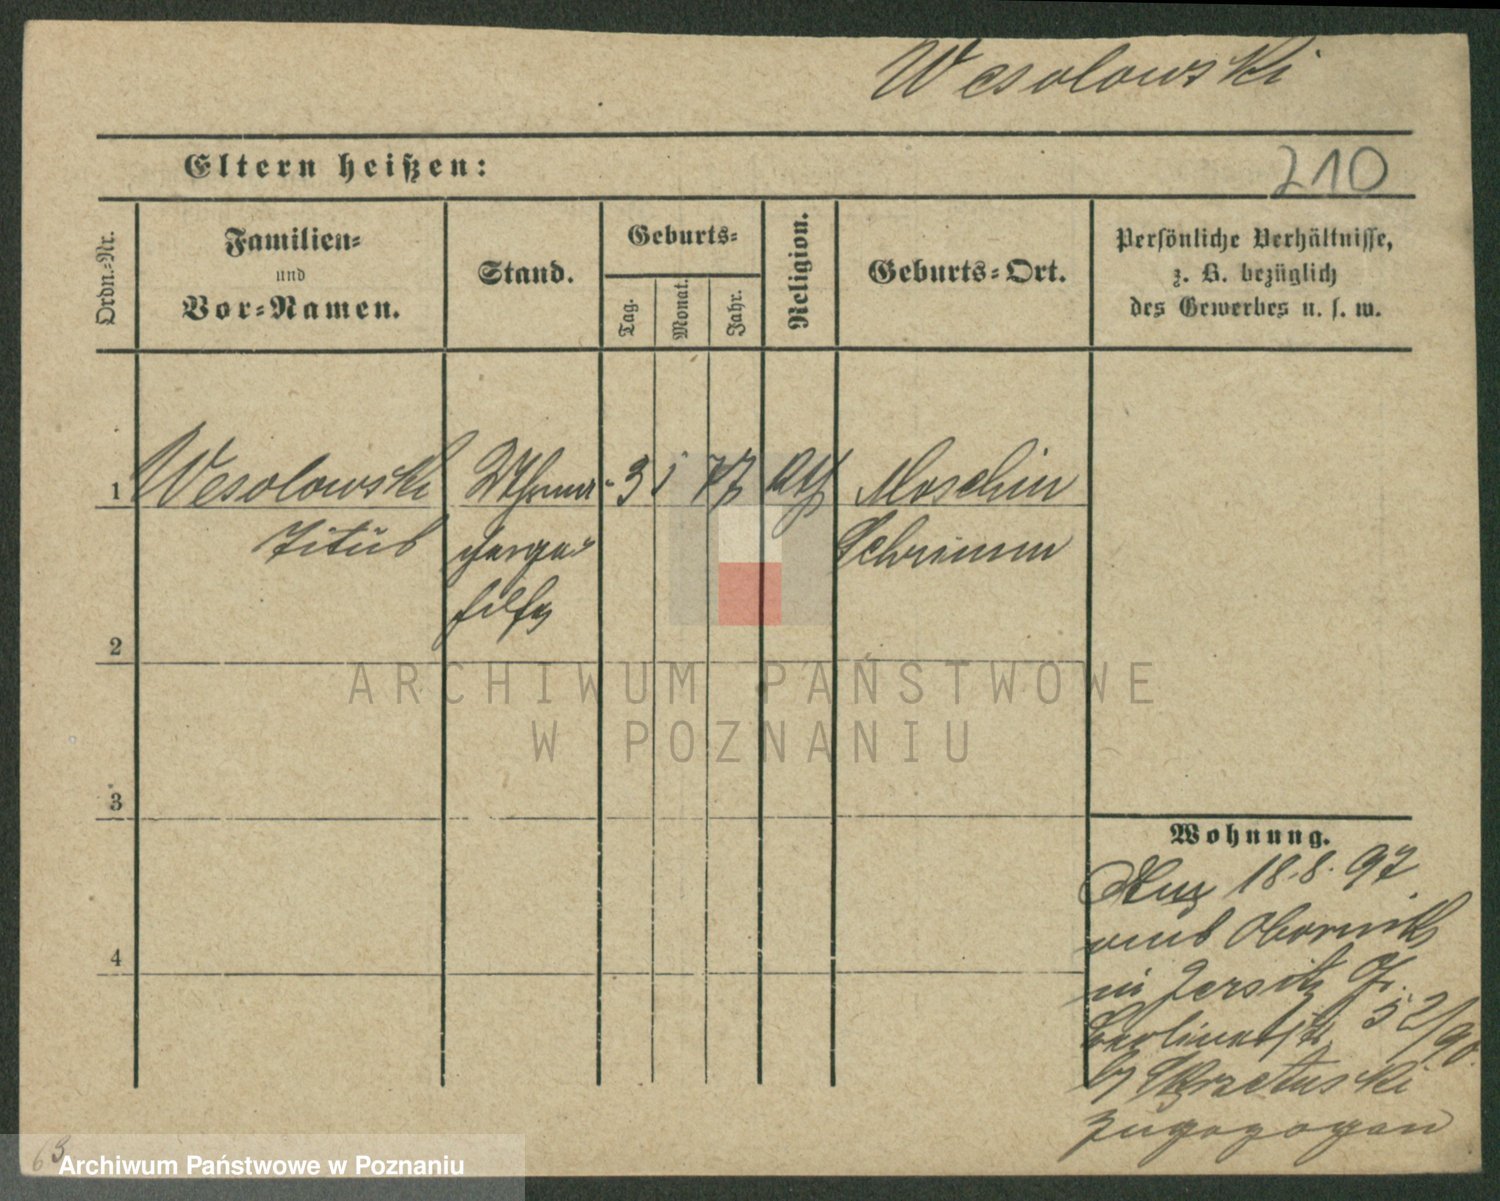 Wesolowski
Eltern heißen:
210
Ordn.-Nr.
Familien-
und
Vor-Namen.
Stand.
Geburts-
Tag.
Monat.
Jahr.
Religion.
Geburts-Ort.
Persönliche Verhältnisse,
z. B. bezüglich
des Gewerbes u. s. w.
1 Wesolowski 3 77 Moschin
Titus Schrimm
2
3
4
Wohnung.
18.8.97
aus Obornik
in Jersitz Gr.
Berlinerstr. 52/90
b/ Skrzetuski
zugezogen
ARCHIWUM PAŃSTWOWE
W POZNANIU
63
Archiwum Państwowe w Poznaniu